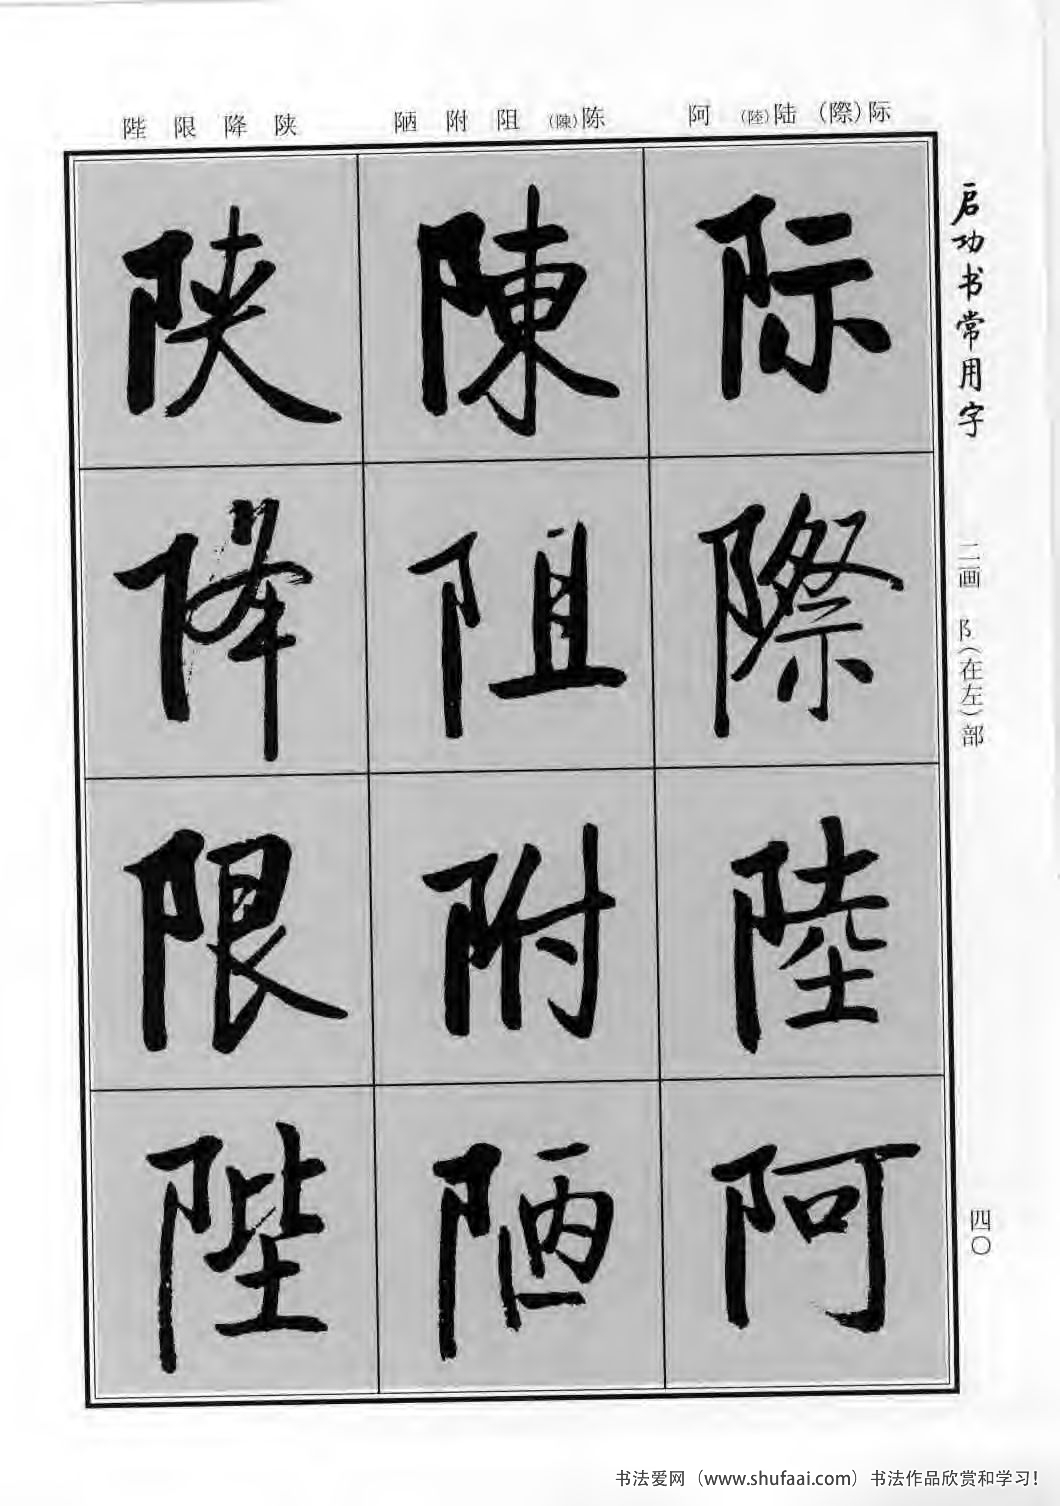 际(際) 陆(陸) 阿
陈(陳) 阻 附 陋
陕 降 限 陛
启功书常用字
二画 阝(在左)部
四〇
际
際
陸
阿
陳
阻
附
陋
陕
降
限
陛
书法爱网（www.shufaai.com）书法作品欣赏和学习!